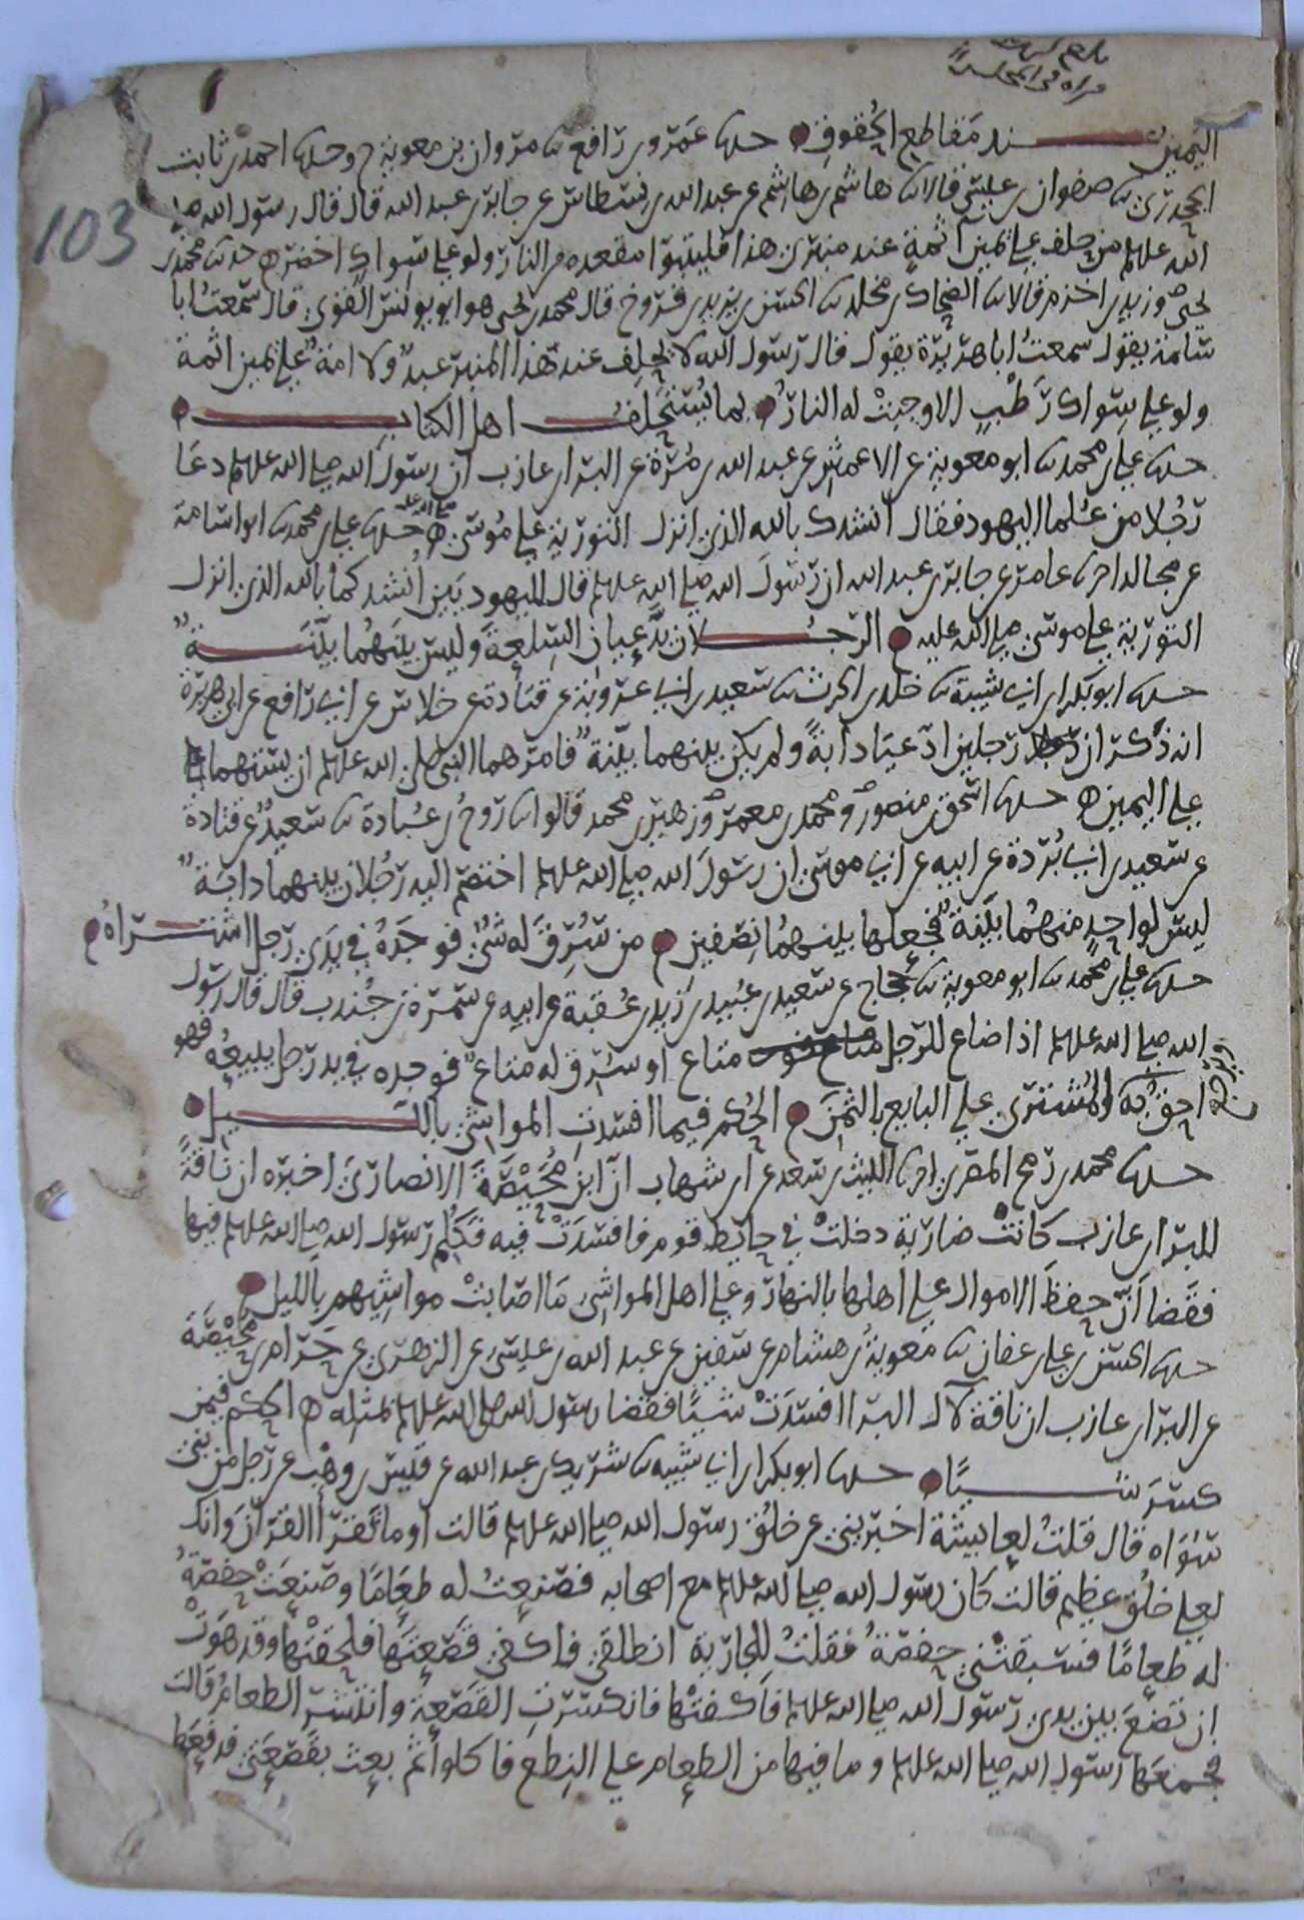 103
اليمين عند مقاطع الحقوق حدثنا عمرو بن رافع ثنا مروان بن معوية ح وحدثنا احمد بن ثابت
الجحدري ثنا صفوان بن عيسى قالا ثنا هاشم بن هاشم عن عبد الله بن نسطاس عن جابر بن عبد الله قال قال رسول الله صلى
الله عليه وسلم من حلف على يمين آثمة عند منبري هذا فليتبوا مقعده من النار ولو على سواك اخضر حدثنا محمد بن
يحيى وزيد بن اخزم قالا ثنا الضحاك بن مخلد ثنا الحسن بن يزيد بن فروخ قال محمد بن يحيى هو ابو يونس القوي قال سمعت ابا
سلمة يقول سمعت ابا هريرة يقول قال رسول الله لا يحلف عند هذا المنبر عبد ولا امة على يمين اثمة
ولو على سواك رطب الا وجبت له النار بما يستحلف اهل الكتاب
حدثنا علي بن محمد ثنا ابو معوية عن الاعمش عن عبد الله بن مرة عن البراء بن عازب ان رسول الله صلى الله عليه وسلم دعا
رجلا من علما اليهود فقال انشدك بالله الذي انزل التورية على موسى صلى الله عليه حدثنا علي بن محمد ثنا ابو اسامة
عن مجالد اخبرنا عامر عن جابر بن عبد الله ان رسول الله صلى الله عليه وسلم قال ليهوديين انشدكما بالله الذي انزل
التورية على موسى صلى الله عليه الرجلان يدعيان السلعة وليس بينهما بينة
حدثنا ابو بكر بن ابي شيبة ثنا خلد بن الحرث ثنا سعيد بن ابي عروبة عن قتادة عن خلاس عن ابي رافع عن ابي هريرة
انه ذكر ان رجلين ادعيا دابة ولم يكن بينهما بينة فامرهما النبي صلى الله عليه وسلم ان يستهما
على اليمين حدثنا اسحق بن منصور ومحمد بن معمر وزهير بن محمد قالوا ثنا روح بن عبادة ثنا سعيد عن قتادة
عن سعيد بن ابي بردة عن ابيه عن ابي موسى ان رسول الله صلى الله عليه وسلم اختصم اليه رجلان بينهما دابة
ليس لواحد منهما بينة فجعلها بينهما نصفين من سرق له شئ فوجده في يدي رجل اشتراه
حدثنا علي بن محمد ثنا ابو معوية ثنا حجاج عن سعيد بن عبيد بن زيد بن عقبة عن ابيه عن سمرة بن جندب قال قال رسول
الله صلى الله عليه وسلم اذا ضاع للرجل متاع او سرق له متاع فوجده في يد رجل يبيعه فهو
احق به ويرجع المشتري على البايع بالثمن الحكم فيما افسدت المواشي بالليل
حدثنا محمد بن رمح المقري اخبرنا الليث بن سعد عن ابن شهاب ان ابن محيصة الانصاري اخبره ان ناقة
للبراء بن عازب كانت ضارية دخلت في حايط قوم فافسدت فيه فكلم رسول الله صلى الله عليه وسلم فيها
فقضا ان حفظ الاموال على اهلها بالنهار وعلى اهل المواشي ما اصابت مواشيهم بالليل
حدثنا الحسن بن علي بن عفان ثنا معوية بن هشام عن سفين عن عبد الله بن عيسى عن الزهري عن حرام بن محيصة
عن البراء بن عازب ان ناقة لآل البرا افسدت شيئا فقضا رسول الله صلى الله عليه وسلم بمثله الحكم فيمن
كسر شيئا حدثنا ابو بكر بن ابي شيبه ثنا شريك بن عبد الله عن قيس بن وهب عن رجل من بني
سواه قال قلت لعايشة اخبريني عن خلق رسول الله صلى الله عليه وسلم قالت اوما تقرأ القرآن وانك
لعلى خلق عظيم قالت كان رسول الله صلى الله عليه وسلم مع اصحابه فصنعت له طعاما وصنعت حفصة
له طعاما فسبقتني حفصة فقلت للجارية انطلقي فاكفي قصعتها فلحقتها وقد هوت
ان تضع بين يدي رسول الله صلى الله عليه وسلم فاكفتها فانكسرت القصعة وانتشر الطعام قالت
فجمعها رسول الله صلى الله عليه وسلم وما فيها من الطعام على النطع فاكلوا ثم بعث بقصعتي فدفعها